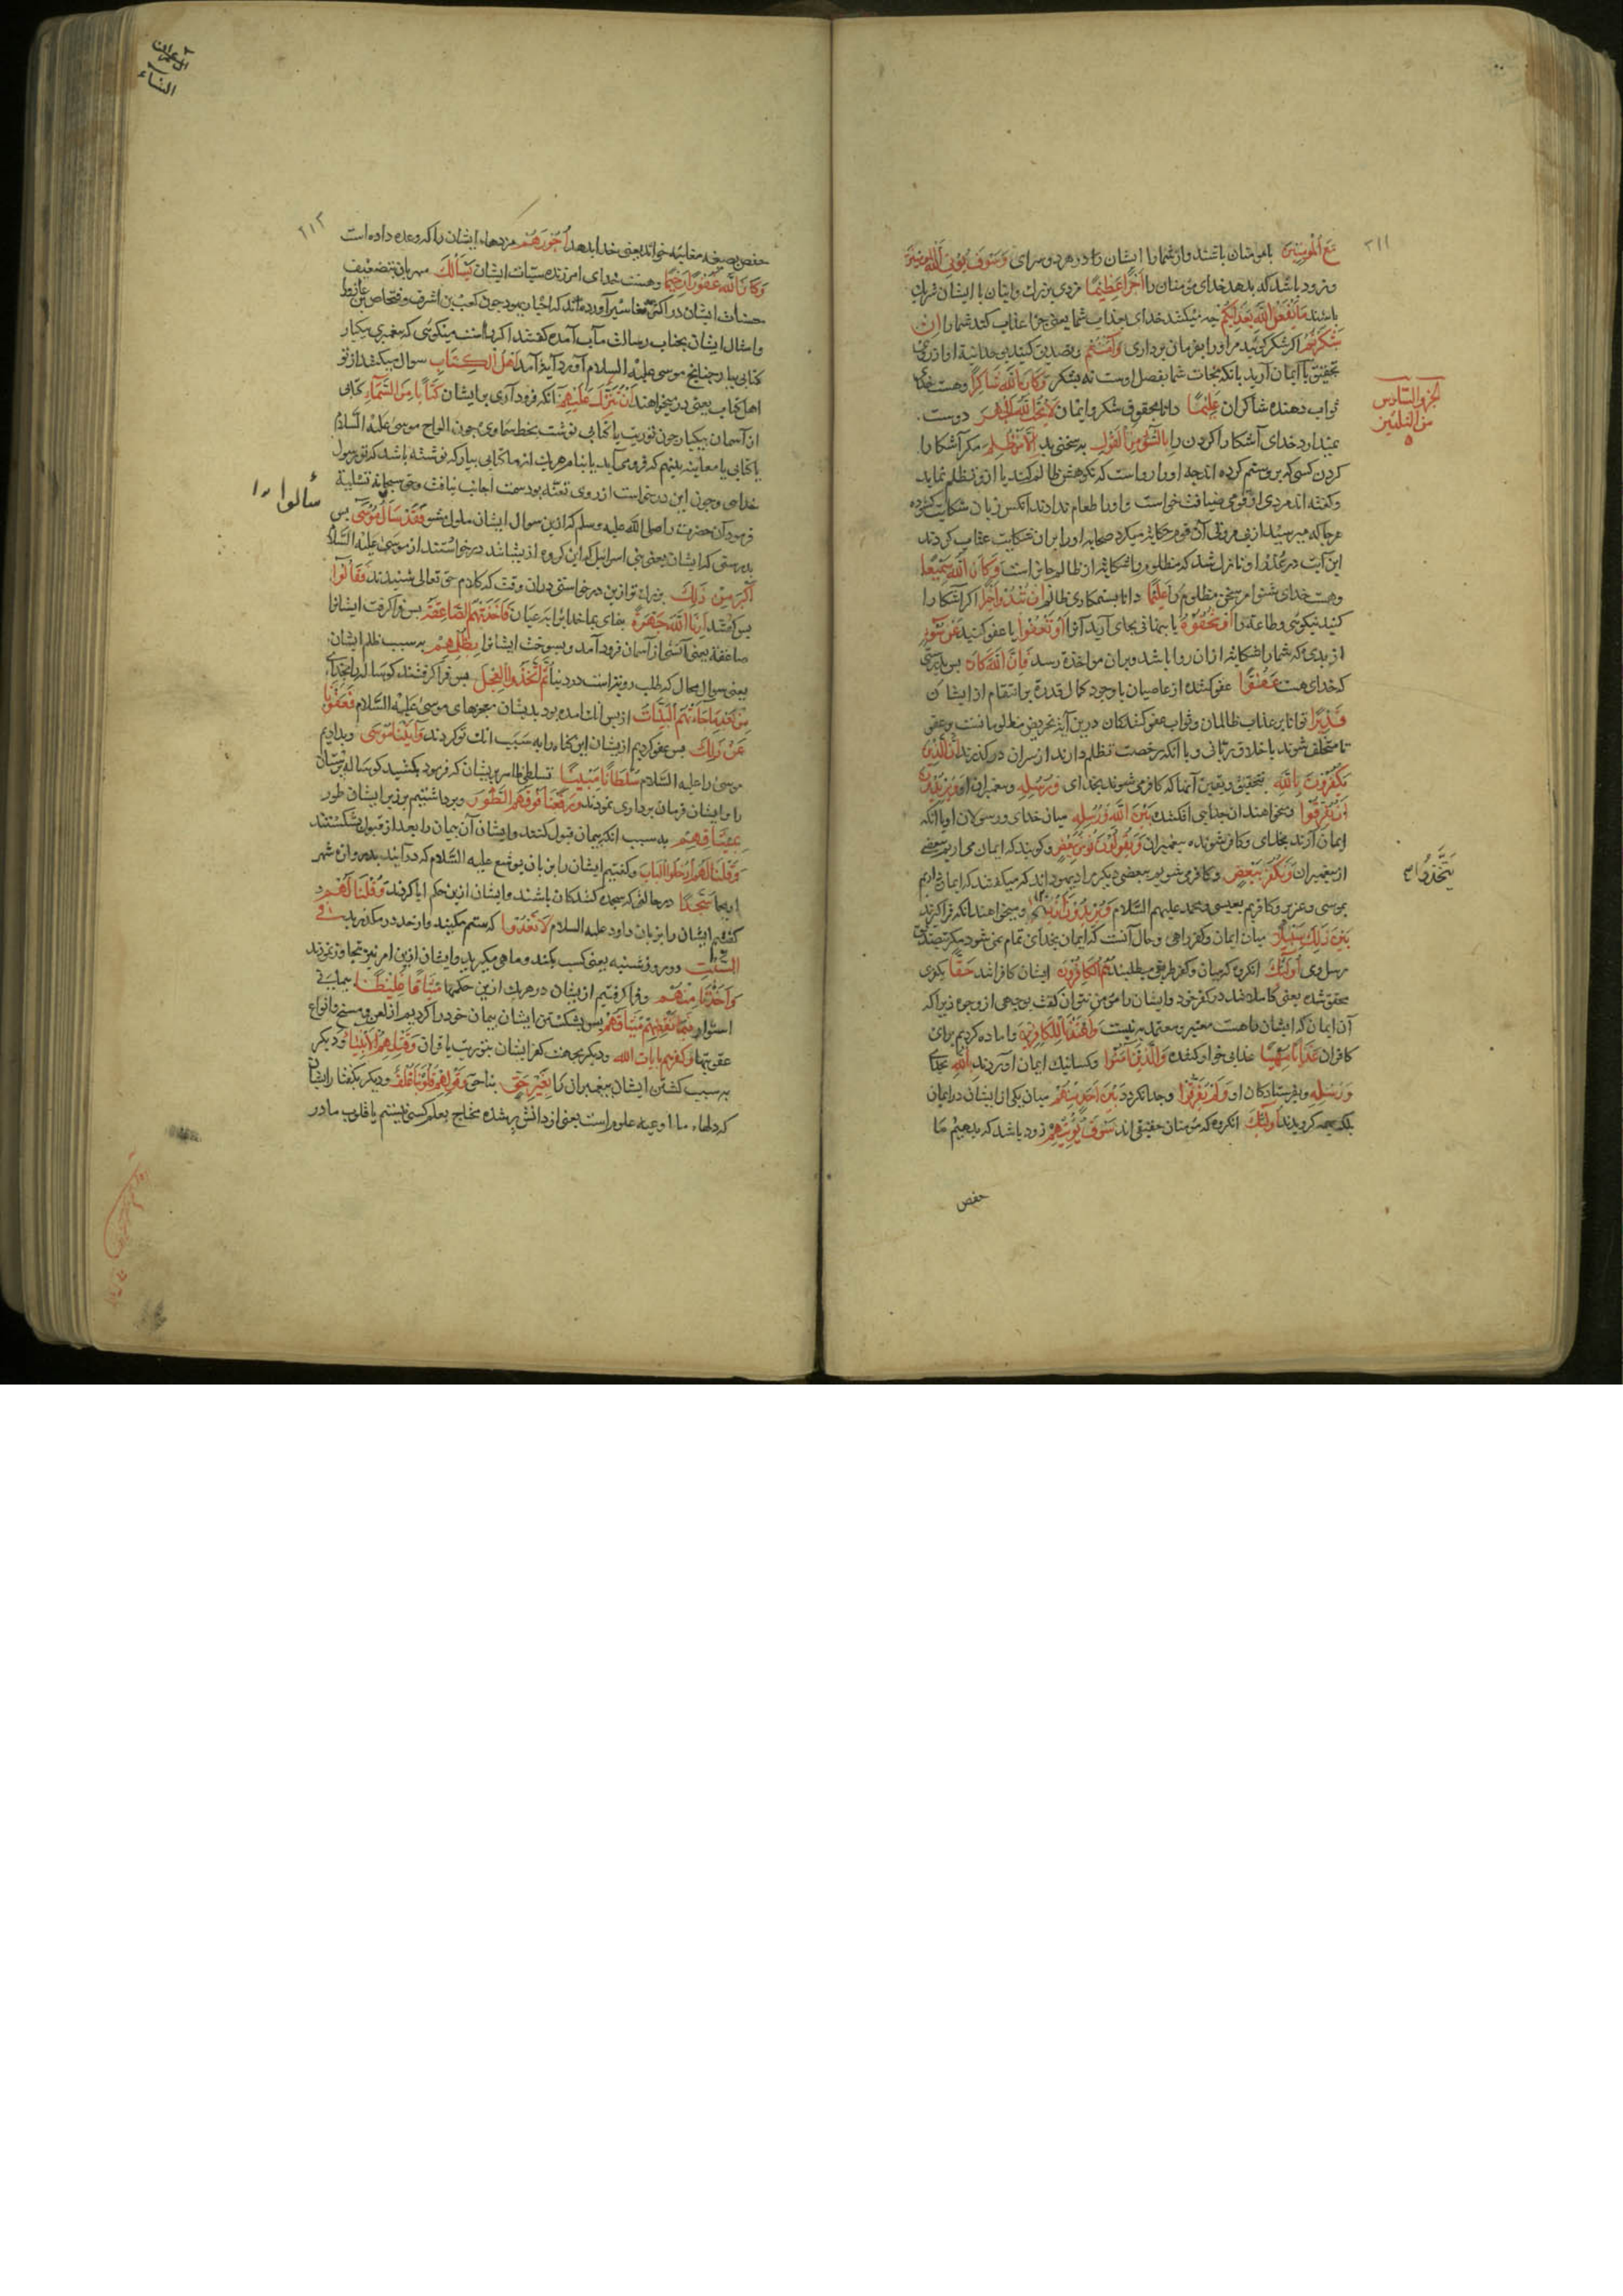 ٢١١
مَعَ الْمُؤمِنِينَ با مومنان باشند و از شمارا ایشان را در هر دو سرای وَسَوفَ یُؤتِی اللّه المُؤمِنِینَ
و زود باشد که بدهد خدای مؤمنان را اَجْرًا عَظِیمًا مزدی بزرك و اینان با ایشان شریك
باشند مَا یَفْعَلُ اللّهُ بِعَذَابِکُمْ چه میکند خدای بعذاب شما یعنی چرا عذاب کند شما را اِنْ
شَکَرْتُمْ اکر شکر کوئید مر او را بفرمان برداری وَآمَنْتُمْ و تصدیق کنید بوحدانیة او از روی
تحقیق یا ایمان آرید بانکه نجات شما بفضل اوست نه بشکر وَکَانَ اللّهُ شَاکِرًا وهست خدای
ثواب دهنده شاکران عَلِیمًا دانا بحقوق شکر و ایمان لَا یُحِبُّ اللّهُ الْجَهْرَ دوست
الجزو السّادس
من الثلثین
نمیدارد خدای آشکارا کردن را بِالسُّوءِ مِنَ الْقَوْلِ به سخنی بد اِلَّا مَنْ ظُلِمَ مکر آشکارا
کردن کسی که برو ستم کرده اند چه او را رواست که نکوهش ظالم کند یا ازو تظلم نماید
و کفته اند مردی از قومی ضیافت خواست و او را طعام ندادند آنکس زبان شکایت کشوده
هرجا که میرسید از بی مروتی آن قوم حکایت میکرد صحابه او را بران شکایت عتاب کردند
این آیت در عذر او نازل شد که مظلوم را شکایت از ظالم جایز است وَکَانَ اللّهُ سَمِیعًا
وهست خدای شنوا مر سخن مظلوم را عَلِیمًا دانا بستمکاری ظالم اِنْ تُبْدُوا خَیْرًا اکر آشکارا
کنید نیکوئی و طاعة را اَوْ تُخْفُوهُ یا پنهانی بجای آرید آنرا اَوْ تَعْفُوا یا عفو کنید عَنْ سُوءٍ
از بدی که شما را شکایت ازان روا باشد و بدان مواخذه رسد فَاِنَّ اللّهَ کَانَ پس بدرستی
که خدای هست عَفُوًّا عفو کننده از عاصیان با وجود کمال قدرة بر انتقام از ایشان
قَدِیرًا توانا بر عذاب ظالمان و ثواب عفو کنندکان درین آیة تحریض مظلومانست بر عفو
تا متخلف شوند باخلاق ربانی و با آنکه رخصت تظلم دارند از سران درکذرند اِنَّ الَّذِینَ
یَکْفُرُونَ بِاللّهِ بتحقیق و یقین آنها که کافر می شوند بخدای وَرُسُلِهِ و پیغمبران او وَیُرِیدُونَ
اَنْ یُفَرِّقُوا و میخواهند ان جدایی افکنند بَیْنَ اللّهِ وَرُسُلِهِ میان خدای و رسولان او یا انکه
ایمان آرند بخدای و کافر شوند به پیغمبران وَیَقُولُونَ نُؤْمِنُ بِبَعْضٍ و کویند که ایمان می اریم ببعضی
از پیغمبران وَنَکْفُرُ بِبَعْضٍ و کافر می شویم ببعضی دیکر مراد یهود اند که میکفتند که ایمان داریم
یَتَّخِذُوا
بموسی و عزیر و کافریم بعیسی و محمد علیهم السّلام وَیُرِیدُونَ اَنْ و میخواهند انکه فرا کیرند
بَیْنَ ذَلِكَ سَبِیلًا میان ایمان و کفر راهی و حال آنست که ایمان بخدای تمام نمی شود مکر بتصدیق
رسل وی اُولَئِكَ انکروه که میان و کفر طریقی میطلبند هُمُ الْکَافِرُونَ ایشان کافرانند حَقًّا بکفری
محقق شده یعنی کامل شده در کفر خود و ایشان را مؤمن نتوان کفت بوجهی از وجوه زیرا که
آن ایمان که ایشان را هست معتبر و معتمد به نیست وَاَعْتَدْنَا لِلْکَافِرِینَ و اماده کردیم برای
کافران عَذَابًا مُهِینًا عذابی خوار کننده وَالَّذِینَ آمَنُوا و کسانیك ایمان اوردند بِاللّهِ بخدای
وَرُسُلِهِ و بفرستادکان او وَلَمْ یُفَرِّقُوا و جدا نکردند بَیْنَ اَحَدٍ مِنْهُمْ میان یکی از ایشان در ایمان
بلکه بهمه کرویدند اُولَئِكَ انکروه که مومنان حقیقی اند سَوْفَ یُؤْتِیهِمْ زود باشد که بدهیم ما
حفص
ال عمران
النساء
٢١٢
حفص بصیغه مغایبه خواند یعنی خدا بدهد اُجُورَهُمْ مزدهاء ایشان را که وعده داده است
وَکَانَ اللّهُ غَفُورًا رَحِیمًا وهست خدای امرزنده سیئات ایشان یَسْأَلُكَ مهربان بتضعیف
حسنات ایشان در اکثر تفاسیر آورده اند که احبار یهود چون کعب بن اشرف و فنحاص بن عازورا
و امثال ایشان بجناب رسالت مآب آمده کفتند اکر راست میکوئی که پیغمبری یکبار
کتابی بیار چنانچ موسی علیه السلام آورد آیة آمد اَهْلُ الْکِتَابِ سوال میکنند از تو
اهل کتاب یعنی درمیخواهند اَنْ تُنَزِّلَ عَلَیْهِمْ آنکه فرود آری بر ایشان کِتَابًا مِنَ السَّمَاءِ کتابی
از آسمان بیکبار چون توریت یا کتابی نوشته بخط سماوی چون الواح موسی عَلَیْهِ السَّلَامُ
یا کتابی یا معاینه بینیم که فرو می آید یا بنام هریك از ما کتابی بیار که نوشته باشد که تو رسول
سألوا
خدای و چون این درخواست از روی تعنّت بود سمت اجابت نیافت و حق سبحانه تسلیة
فرمود آن حضرت را صلی اللّه علیه وسلم که ازین سوال ایشان ملول مشو فَقَدْ سَأَلُوا مُوسَی پس
بدرستی که ایشان یعنی بنی اسرائیل که این کروه از یشانند درخواستند از موسی علیه السّلام
اَکْبَرَ مِنْ ذَلِكَ بزرك تر ازین درخواستی دران وقت که کلام حق تعالی شنیدند فَقَالُوا
پس کفتند اَرِنَا اللّهَ جَهْرَةً بنمای بما خدا را به عیان فَاَخَذَتْهُمُ الصَّاعِقَةُ پس فرا کرفت ایشانرا
صاعقه یعنی آتشی از آسمان فرود آمد و بسوخت ایشانرا بِظُلْمِهِمْ به سبب ظلم ایشان
یعنی سوال محال که طلب رویتست در دنیا ثُمَّ اتَّخَذُوا الْعِجْلَ پس فرا کرفتند کوساله را بخدای
مِنْ بَعْدِ مَا جَاءَتْهُمُ الْبَیِّنَاتُ از پس انك امده بود بدیشان معجزهای موسی عَلَیْهِ السَّلام فَعَفَوْنَا
عَنْ ذَلِكَ پس عفو کردیم از یشان این کناه را به سَبَب انك توبه کردند وَآتَیْنَا مُوسَی و بدادیم
موسی را علیه السّلام سُلْطَانًا مُبِینًا تسلطی ظاهر بریشان که فرمود بکشید کوساله پرستان
را و ایشان فرمان برداری نمودند وَرَفَعْنَا فَوْقَهُمُ الطُّورَ و برداشتیم بر زبر ایشان طور
بِمِیثَاقِهِمْ به سبب انکه پیمان قبول کنند و ایشان آن پیمان را بعد از قبول بشکستند
وَقُلْنَا لَهُمُ ادْخُلُوا الْبَابَ و کفتیم ایشان را بزبان یوشع علیه السّلام که درآیند بدروازه شهر
اریحا سُجَّدًا درحالتی که سجده کنندکان باشند و ایشان ازین حکم ابا کردند وَقُلْنَا لَهُمْ و
کفتیم ایشان را بزبان داود علیه السلام لَا تَعْدُوا که ستم مکنید و از حد در مکذرید فِی
السَّبْتِ در روز شنبه یعنی کسب مکنید و ماهی مکیرید و ایشان ازین امر نیز تجاوز نمودند
وَاَخَذْنَا مِنْهُمْ و فرا کرفتیم از یشان در هر یك ازین حکمها مِیثَاقًا غَلِیظًا پیمانی
استوار فَبِمَا نَقْضِهِمْ مِیثَاقَهُمْ پس بشکستن ایشان پیمان خود را کردیم از لعن و مسخ و انواع
عقوبتها وَکُفْرِهِمْ بِآیَاتِ اللّه و دیکر بجهت کفر ایشان بتوریت یا قران وَقَتْلِهِمُ الْاَنْبِیَاءَ و دیکر
به سبب کشتن ایشان پیغمبران را بِغَیْرِ حَقٍّ بناحق وَقَوْلِهِمْ قُلُوبُنَا غُلْفٌ و دیکر بکفتار ایشان
که دلهاء ما اوعیه علوم است یعنی از دانش پر شده محتاج بعلم کسی نیستیم یا قلوب ما در